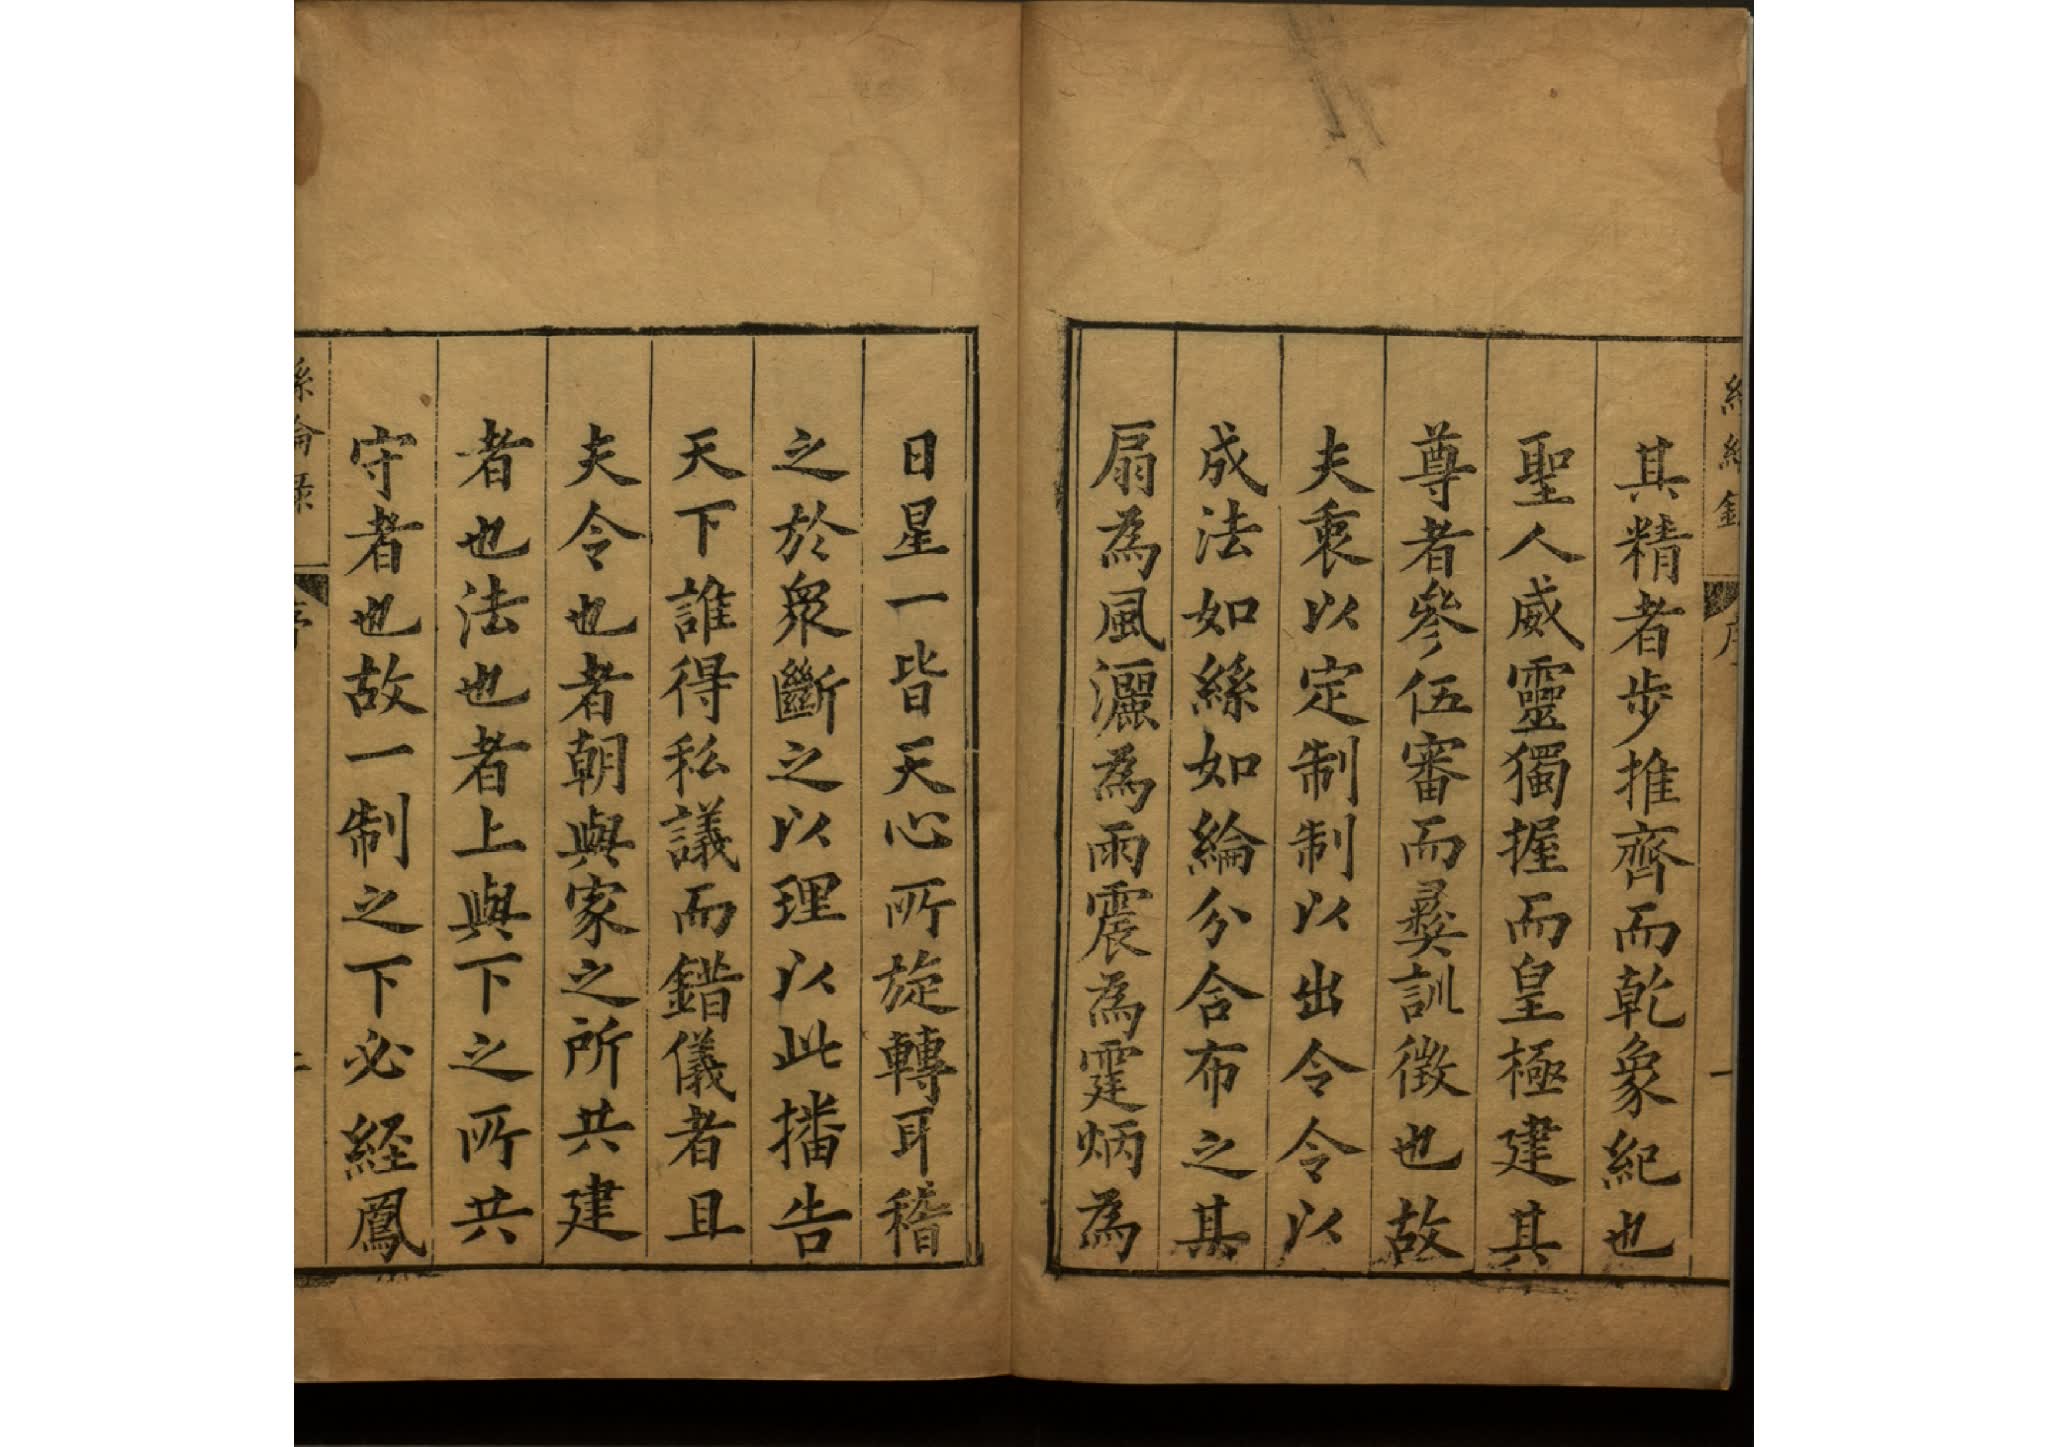 絲綸錄
序
一
其精者步推齊而乾象紀也
聖人威靈獨握而皇極建其
尊者參伍審而彝訓徵也故
夫衷以定制制以出令令以
成法如絲如綸分合布之其
扇為風灑為雨震為霆炳為
日星一皆天心所旋轉耳稽
之於眾斷之以理以此播告
天下誰得私議而錯儀者且
夫令也者朝與家之所共建
者也法也者上與下之所共
守者也故一制之下必經鳳
絲綸錄
序